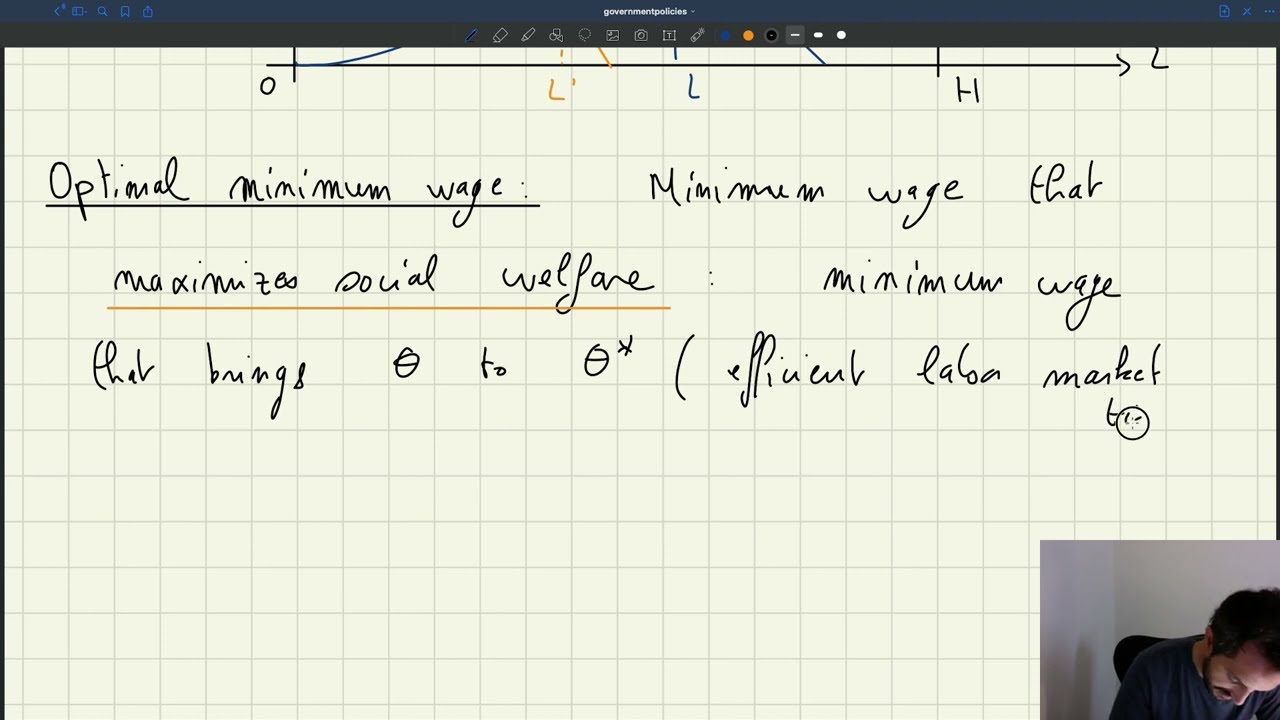 governmentpolicies
O L' L H L
Optimal minimum wage: Minimum wage that
maximizes social welfare : minimum wage
that brings θ to θ* ( efficient labor market